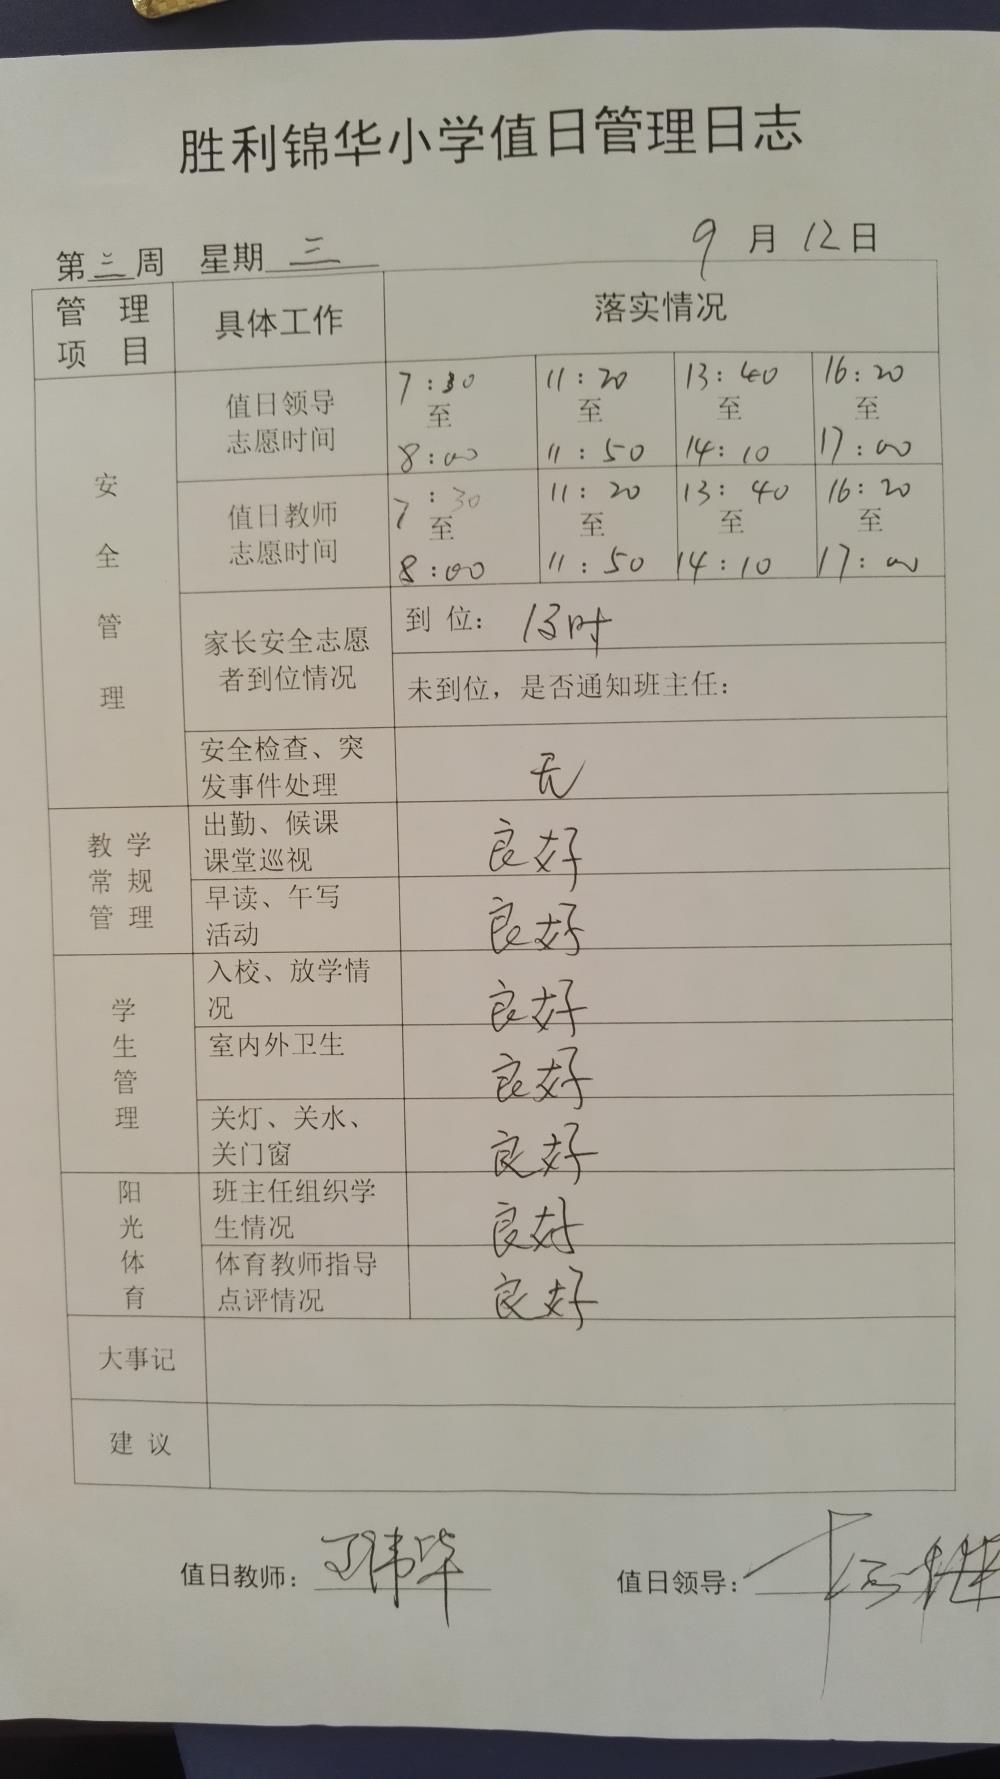 胜利锦华小学值日管理日志
第三周 星期三 9月12日
管理项目 具体工作 落实情况
安全管理
值日领导志愿时间 7:30至8:00 11:20至11:50 13:40至14:10 16:20至17:00
值日教师志愿时间 7:30至8:00 11:20至11:50 13:40至14:10 16:20至17:00
家长安全志愿者到位情况
到位:
未到位，是否通知班主任:
安全检查、突发事件处理 无
教学常规管理
出勤、候课课堂巡视 良好
早读、午写活动 良好
学生管理
入校、放学情况 良好
室内外卫生 良好
关灯、关水、关门窗 良好
阳光体育
班主任组织学生情况 良好
体育教师指导点评情况 良好
大事记
建议
值日教师: 值日领导: